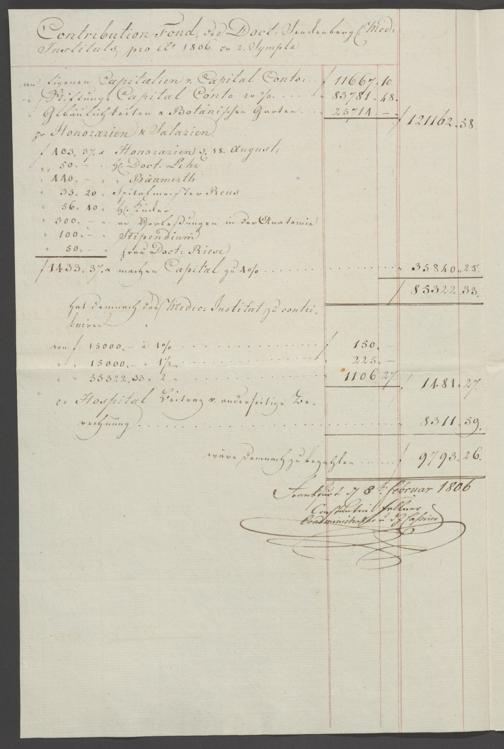 Contribution Fond, des Doct: Senckenberg: Medic:
Instituts, pro Aº 1806 in 2. Symple
an Eigenen Capitalien v. Capital Conto . . f 11667. 10.
" Stiftungs Capital Conto . . . . . " 83781. 48.
" Gebäulichkeiten & Botanischen Garten . . " 25714. — f 121162. 58
Honorarien & Salarien
f 403. 37. Honorarien August
" 50. — " H. Doct. Lehr
" 440. — " " Bäumerth
" 33. 20 Spitalmeister Reus
" 56. 40. H:
" 300. — an Vorlesungen in der Anatomie
" 100. — " Stipendium
" 50. — " Frau Doct: Riese
f 1433. 37. machen Capital zu 4% . . . . . " 35840. 25.
f 85322. 33.
hat demnach das Medic: Institut zu contri-
buiren
von f 15000. — à 1% . . . . . f 150. —
" " 15000. — " 1½ . . . . . " 225. —
" " 55322. 33. " 2 . . . . . " 1106. 27 f 1481. 27
Hospital Beitrag v. anderseitige Be-
rechnung . . . . . " 8311. 59.
wäre demnach zu bezahlen . . . . f 9793. 26.
Frankfurt d 8t. Februar 1806